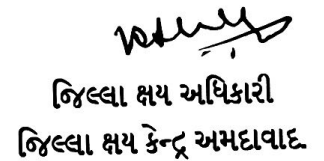 જિલ્લા ક્ષય અધિકારી
જિલ્લા ક્ષય કેન્દ્ર અમદાવાદ.